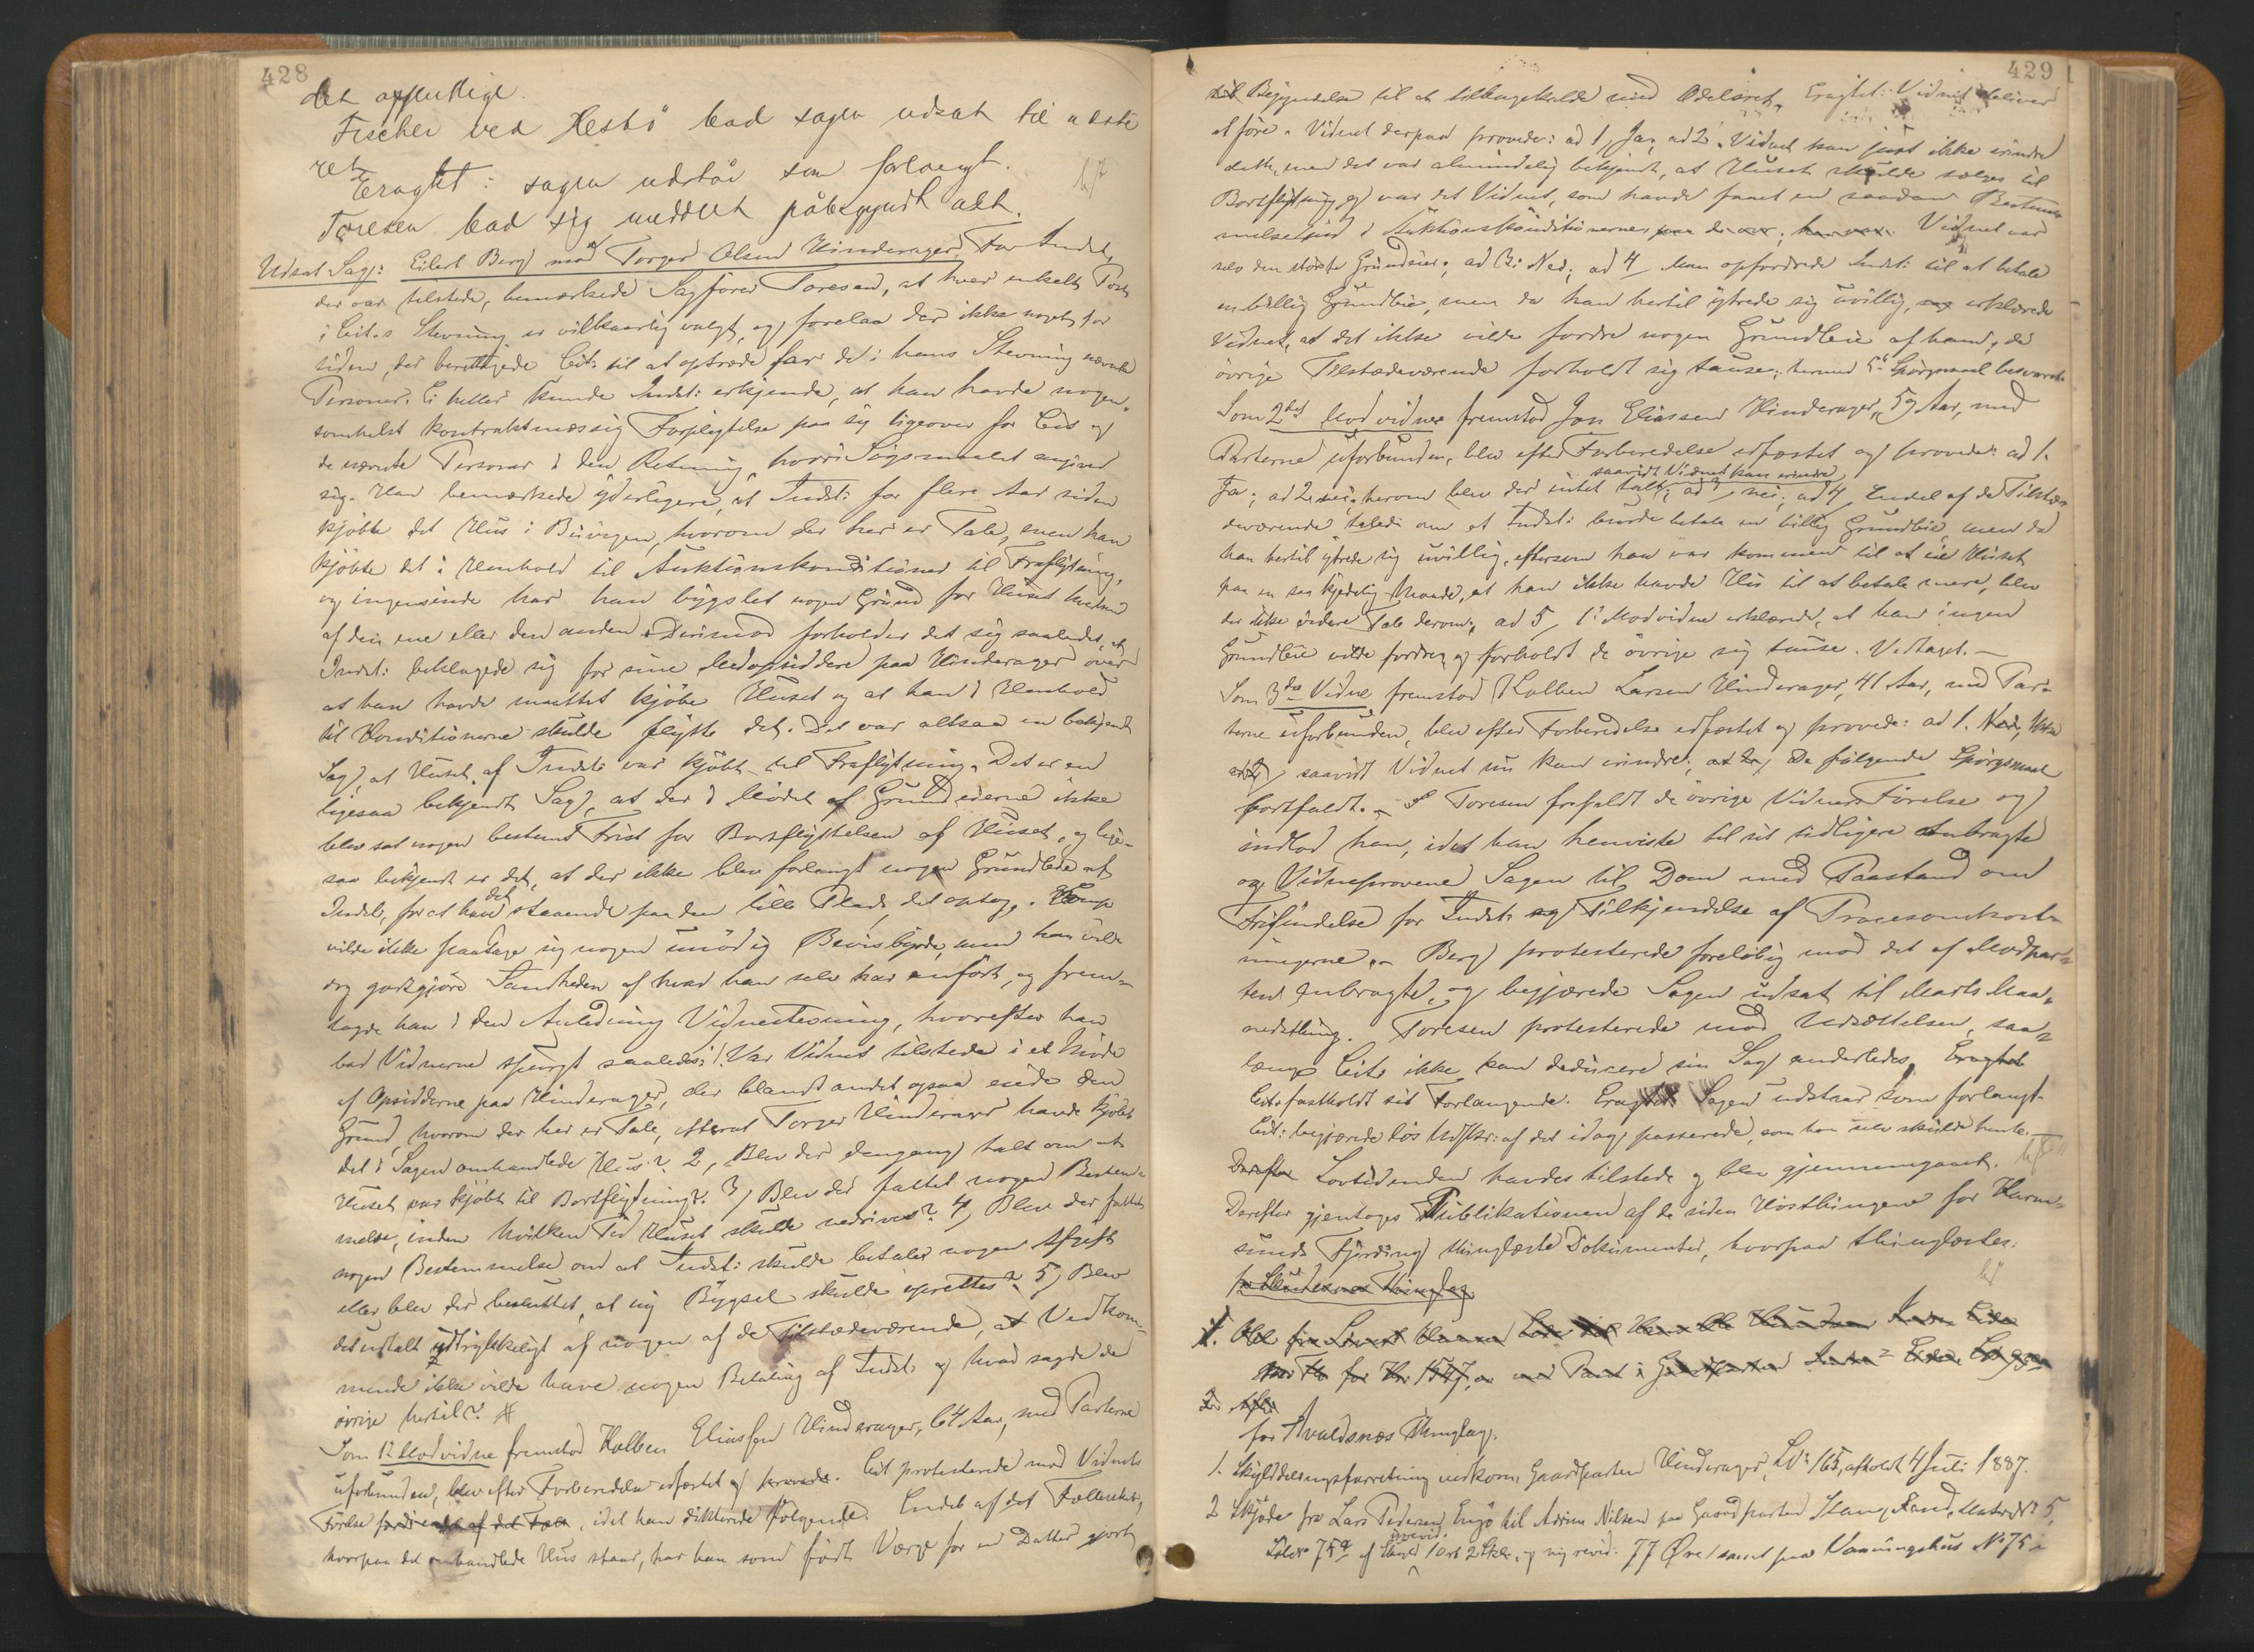 428
det offentlige.
Fischer ved Hestø bad sagen udsat til næste
ret
Eragtet: sagen udstår som forlangt.
Toresen bad sig meddelt påbegyndt akt.
Udsat Sag: Eilert Berg mod Torger Olsen Hinderager. For Indst.
der var tilstede, bemærkede Sagfører Toresen, at hver enkelt Post
i Cit.s Stevning er vilkaarlig valgt, og forelaa der ikke noget for
siden, der berettigede Cit: til at optræde for de i hans Stevning nævnte
Personer. Ei heller kunde Indst: erkjende, at han havde nogen-
somhelst kontraktmæssig Forpligtelse paa sig ligeover for Cit. og
de nævnte Personer i den Retning, hvori Søgsmaalet angiver
sig. Han bemærkede yderligere, at Indst: for flere Aar siden
kjøbte det Hus i Buvigen, hvorom der her er Tale, men han
kjøbte det i Henhold til Auktionskonditioner til Fraflytning,
og ingensinde har han bygslet nogen Grund for Huset hverken
af den ene eller den anden. Derimod forholder det sig saaledes, at
Indst: beklagede sig for sine Medopsiddere paa Hinderager over
at han havde maattet kjøbe Huset og at han i Henhold
til Konditionerne skulde flytte det. Det var altsaa en bekjendt
Sag, at Huset af Indst: var kjøbt til Fraflytning. Det er en
ligesaa bekjendt Sag, at der i Mødet af Grundeierne ikke
blev sat nogen bestemt Frist for Bortflyttelsen af Huset, og lige-
saa bekjendt er det, at der ikke blev forlangt nogen Grundleie af
Indst., for at have det staaende paa den lille Plads, det optog.
vilde ikke paatage sig nogen unødig Bevisbyrde, men han vilde
dog godtgjøre Sandheden af hvad han selv har anført, og frem-
lagde han i den Anledning Vidnestevning, hvorefter han
bad Vidnerne spurgt saaledes: 1. Var Vidnet tilstede i et Møde
af Opsidderne paa Hinderager, der blandt andet ogsaa eiede den
Grund, hvorom der her er Tale, efterat Torger Hinderager havde kjøbt
det i Sagen omhandlede Hus? 2, Blev der dengang talt om at
Huset var kjøbt til Bortflytning? 3, Blev der fattet nogen Bestem-
melse, inden hvilken Tid Huset skulde nedrives? 4, Blev der fattet
nogen Bestemmelse om at Indst: skulde betale nogen Afgift
eller blev det besluttet, at ny Bygsel skulde oprettes? 5, Blev
det udtalt udtrykkeligt af nogen af de Tilstedeværende, at Vedkom-
mende ikke vilde have nogen Betaling af Indst. og hvad sagde de
øvrige hertil?
Som 1ste Modvidne fremstod Kolben Eliassen Hinderager, 64 Aar, med Parterne
uforbunden, blev efter Forberedelse edfæstet og provede. Cit protesterede mod Vidnets
Førelse, idet han dikterede Følgende: Endel af det Fællesskab,
hvorpaa det omhandlede Hus staar, har han som født Værge for en Datter gjort
429
til Begyndelse til at tilbagekalde med Odelsret. Eragtet: Vidnet bliver
at føre. Vidnet derpaa provede: ad 1, Ja; ad 2. Vidnet kan just ikke erindre
dette, men det var almindelig bekjendt, at Huset skulde sælges til
Bortflytning, og var det Vidnet, som havde faaet en saadan Bestem-
melse ind i Auktionskonditionerne; Vidnet var
selv den største Grundeier; ad 3: Nei; ad 4, Man opfordrede Indst: til at betale
en billig Grundleie, men da han hertil ytrede sig uvillig, erklærede
Vidnet, at det ikke vilde fordre nogen Grundleie af ham, de
øvrige Tilstedeværende forholdt sig tause; hermed 5te Spørgsmaal besvaret.
Som 2det Modvidne fremstod Jon Eliassen Hinderager, 59 Aar, med
Parterne uforbunden, blev efter Forberedelse edfæstet og provede: ad 1.
saavidt Vidnet kan erindre
Ja; ad 2 nei, herom blev der intet talt; ad 3, nei; ad 4, Endel af de Tilstede-
deværende talede om at Indst: burde betale en billig Grundleie, men da
han hertil ytrede sig uvillig, eftersom han var kommen til at eie Huset
paa en saa kjedelig Maade, at han ikke havde til at betale mere, blev
der ikke videre Tale derom; ad 5, 1ste Modvidne erklærede, at han ingen
Grundleie vilde fordre, og forholdt de øvrige sig tause. Vedtaget.—
Som 3die Vidne fremstod Kolben Larsen Hinderager, 41 Aar, med Par-
terne uforbunden, blev efter Forberedelse edfæstet og provede: ad 1. Nei, ikke
saavidt Vidnet nu kan erindre; De følgende Spørgsmaal
bortfaldt. — Toresen frafaldt de øvrige Vidners Førelse og
indlod han, idet han henviste til sit tidligere Anbragte
og Vidneprovene Sagen til Dom med Paastand om
Frifindelse for Indst: og Tilkjendelse af Procesomkost-
ningerne. — Berg protesterede foreløbig mod det af Modpar-
ten Anbragte, og begjærede Sagen udsat til Marts Maa-
nedsthing. Toresen protesterede mod Udsættelsen, saa-
længe Cit: ikke kan deducere sin Sag anderledes.
Cit: fastholdt sit Forlangende. Eragtet: Sagen udstaar som forlangt.
Cit: begjærede løs Udskr: af det idag passerede, som han selv skulde hente.—
Lovtidenden havdes tilstede og blev gjennemgaaet.
Derefter gjentoges Publikationen af de siden Høstthingene for Karm-
sunds Fjerding thinglæste Dokumenter, hvorpaa thinglæstes:
for Avaldsnes Thinglag.
1. Skylddelingsforretning vedkom. Gaardparten Hinderager, LNo 165, afholdt 4 Juli 1887.
2 Skjøde fra Lars Pedersen Engø til Adrine Nilsen paa Gaardparten Stange Land, Matr. No 5,
urevid.
Løbeno 75a af Skyld 1 Ort 2 Skill., og ny revid: 77 Øre samt paa Vaaningshus No 75